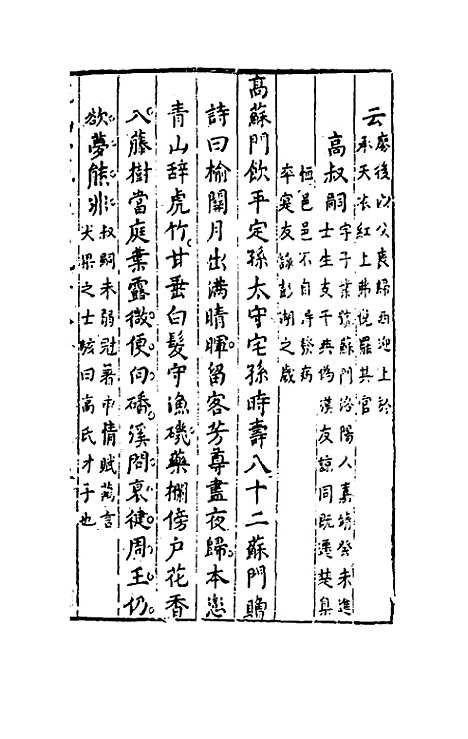 云
廖後以父喪歸西迎上於
承天衣紅上弗悅罷其官
高叔嗣
字子業號蘇門洛陽人嘉靖癸未進
士生支干與偽漢友諒同既遷楚臬
恒邑邑不自得發病
卒寔友諒彭湖之歲
高蘇門飲平定孫太守宅孫時壽八十二蘇門贈
詩曰榆關月出滿晴暉留客芳尊盡夜歸本戀
青山辭虎竹甘垂白髮守漁磯藥欄傍戶花香
入藤樹當庭葉露微便向磻溪問哀健周王仍
欲夢熊非
叔嗣未弱冠著申情賦萬言
大梁之士駭曰高氏才子也